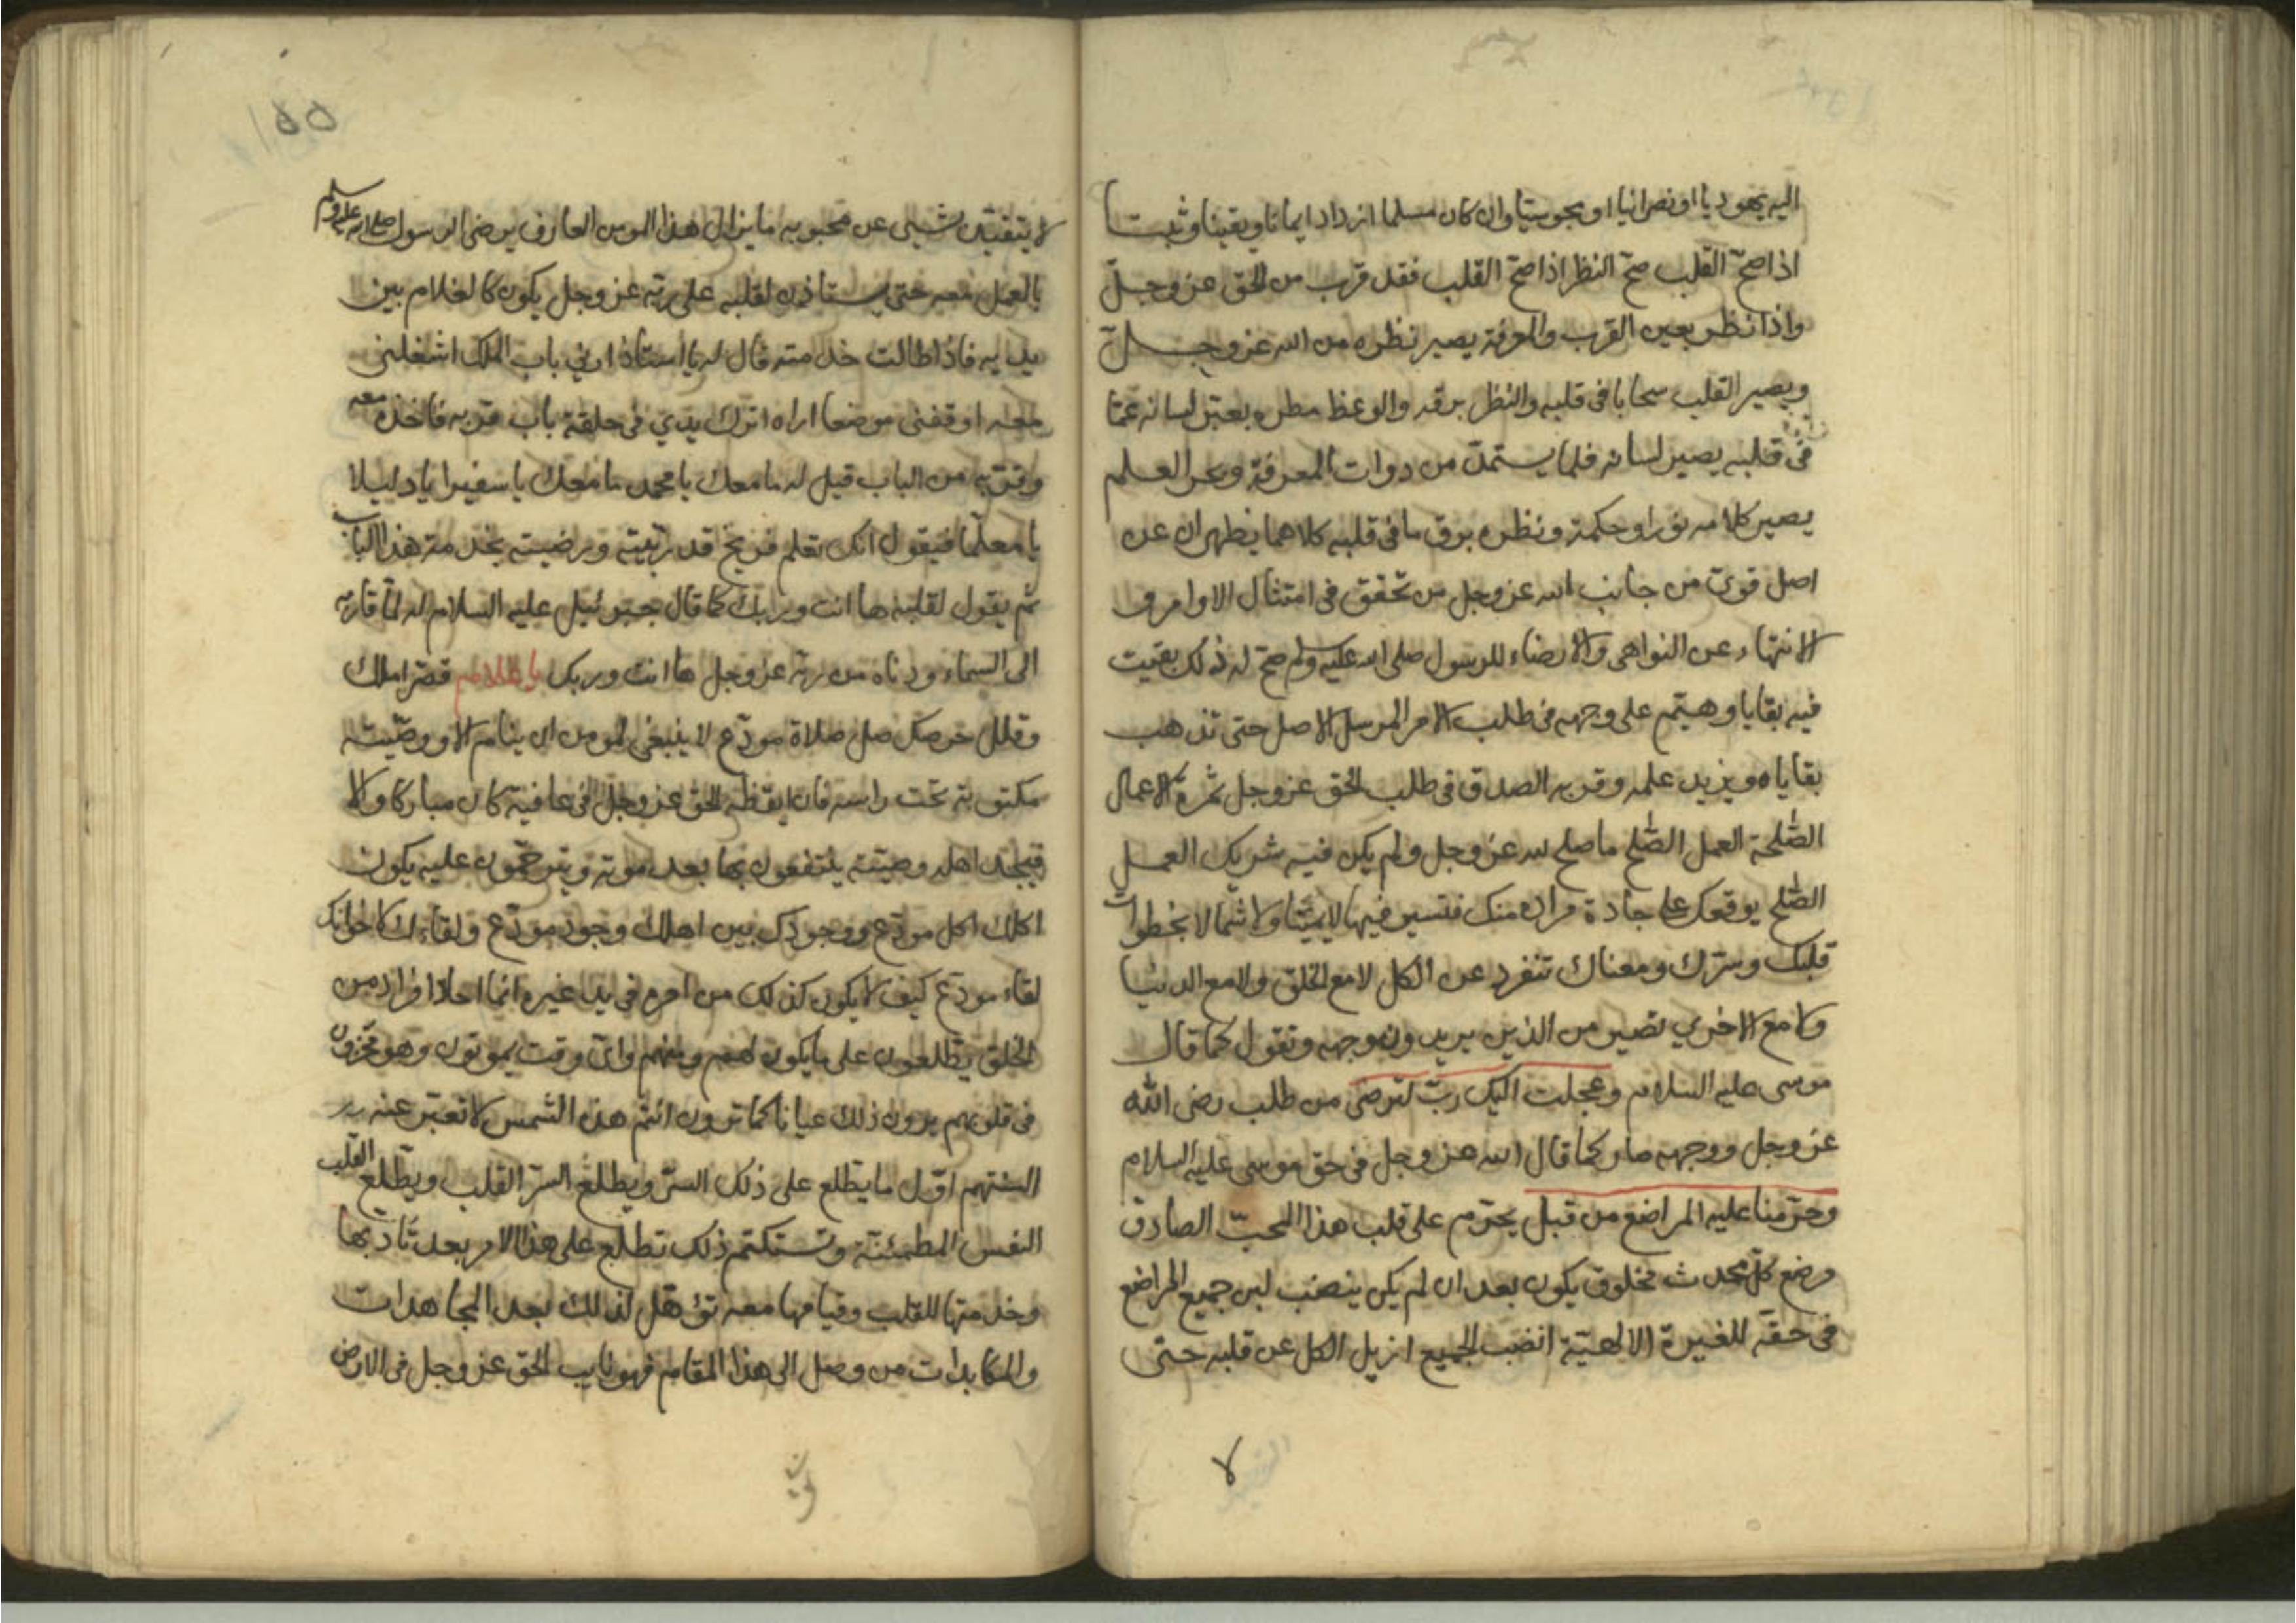 اليه يهوديا او نصرانيا او مجوسيا وان كان مسلما ازداد ايمانا ويقينا وثبتا
اذا صحّ القلب صحّ النظر اذا صحّ القلب فقد قرب من الحق عز وجلّ
واذا نظر بعين القرب والمعرفة يصير نظره من الله عز وجلّ
ويصير القلب سحابا في قلبه والنظر برقه والوعظ مطره يعبّر لسانه عمّا
في قلبه يصير لسانه قلما يستمدّ من دوات المعرفة وبحر العلم
يصير كلامه نورا وحكمة ونظره برق ما في قلبه كلاهما يظهران عن
اصل قويّ من جانب الله عز وجل من تحقق في امتثال الاوامر و
الانتهاء عن النواهي والارضاء للرسول صلى الله عليه وسلم صحّ له ذلك بقيت
فيه بقايا وهيّم على وجهه في طلب الامر المرسل الاصل حتى تذهب
بقاياه ويزيد علمه وقربه الصدق في طلب الحق عز وجل ثمرة الاعمال
الصّلحة العمل الصّلح ما صلح لله عز وجل ولم يكن فيه شريك العمل
الصّلح يوقعك على جادة مراده منك فتسير فيها لا يمينا ولا شمالا بخطوات
قلبك وسرّك ومعناك تنفرد عن الكل لا مع الخلق ولا مع الدنيا
ولا مع الاخري تصير من الذين يريدون وجهه وتقول كما قال
موسى عليه السلام وعجلت اليك ربّ لترضى من طلب رضى الله
عز وجل ووجهه صار كما قال الله عز وجل في حق موسى عليه السلام
وحرّمنا عليه المراضع من قبل يحرّم على قلب هذا المحبّ الصادق
مرضع كل محدث مخلوق يكون بعد ان لم يكن ينضب لبن جميع المراضع
في حقّه للغيرة الالهيّة انضب الجميع ازيل الكل عن قلبه حتى
لا
لا يتقيّد بشيئ عن محبوبه ما يزال هذا المومن العارف يرضى الرسول صلى الله عليه وسلم
بالعمل معه حتى يستاذن لقلبه على ربّه عز وجل يكون كالغلام بين
يديه فاذا طالت خدمته قال له يا استاذ ارني باب الملك اشغلني
معه اوقفني موضعا اراه اترك يدي في حلقة باب قربه فاخذه معه
وقرّبه من الباب قيل له ما معك يا محمد ما معك يا سفيرا يا دليلا
يا معلّما فيقول انك تعلم فريخ قد ربّيته ورضيته بخدمة هذا الباب
ثم يقول لقلبه ها انت وربك كما قال جبرئيل عليه السلام له لمّا قاربه
الى السماء ودناه من ربّه عز وجل ها انت وربك يا غلام قصّر املك
وقلل حرصك صل صلاة مودّع لا ينبغي لمومن ان ينام الا ووصّيته
مكتوبة تحت راسه فان ايقظه الحق عز وجل في عافية كان مباركا والا
فيجد اهله وصيّته ينتفعون بها بعد موته ويترحّمون عليه يكون
اكلك اكل مودّع ووجودك بين اهلك وجود مودّع ولقاءك لاخوانك
لقاء مودّع كيف لا يكون كذلك من امره في يد غيره انما احاد افراد من
الخلق يطّلعون على ما يكون لهم ومنهم وايّ وقت يموتون وهو مخزون
في قلوبهم يرون ذلك عيانا كما ترون انتم هذه الشمس لا تعبّر عنه
السنتهم اوّل ما يطّلع على ذلك السرّ ويطلع السرّ القلب ويطّلع القلب
النفس المطمئنّة وتستكتم ذلك تطلع على هذا الامر بعد تأدّبها
وخدمتها للقلب وقيامها معه تؤهّل لذلك بعد المجاهدات
والمكابدات من وصل الى هذا المقام فهو نايب الحق عز وجل في الارض